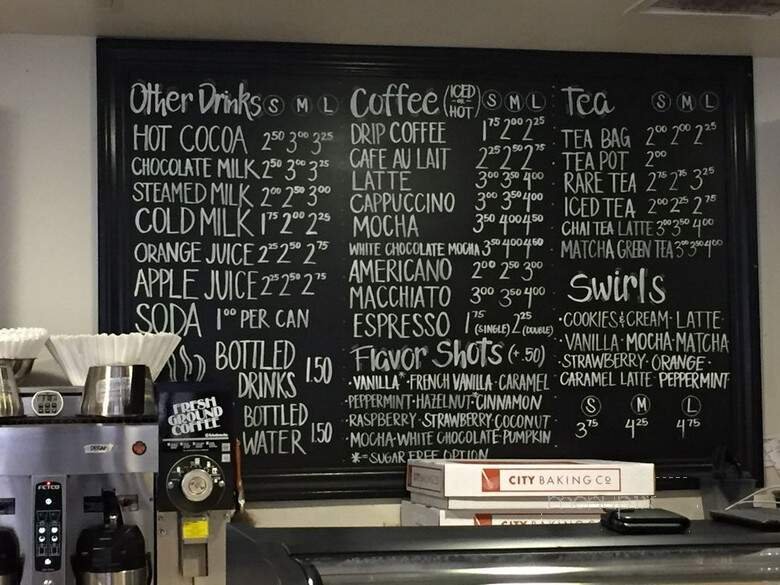 Other Drinks S M L
HOT COCOA 2.50 3.00 3.25
CHOCOLATE MILK 2.50 3.00 3.25
STEAMED MILK 2.00 2.50 3.00
COLD MILK 1.75 2.00 2.25
ORANGE JUICE 2.25 2.50 2.75
APPLE JUICE 2.25 2.50 2.75
SODA 1.00 PER CAN
BOTTLED DRINKS 1.50
BOTTLED WATER 1.50
Coffee (ICED OR HOT) S M L
DRIP COFFEE 1.75 2.00 2.25
CAFE AU LAIT 2.25 2.50 2.75
LATTE 3.00 3.50 4.00
CAPPUCCINO 3.00 3.50 4.00
MOCHA 3.50 4.00 4.50
WHITE CHOCOLATE MOCHA 3.50 4.00 4.50
AMERICANO 2.00 2.50 3.00
MACCHIATO 3.00 3.50 4.00
ESPRESSO 1.75 (SINGLE) 2.25 (DOUBLE)
Flavor Shots (+.50)
·VANILLA* ·FRENCH VANILLA· CARAMEL
·PEPPERMINT·HAZELNUT*·CINNAMON
RASPBERRY· STRAWBERRY· COCONUT
·MOCHA·WHITE CHOCOLATE·PUMPKIN
*=SUGAR FREE OPTION
Tea S M L
TEA BAG 2.00 2.00 2.25
TEA POT 2.00
RARE TEA 2.75 2.75 3.25
ICED TEA 2.00 2.25 2.75
CHAI TEA LATTE 3.00 3.50 4.00
MATCHA GREEN TEA 3.00 3.50 4.00
Swirls
·COOKIES&CREAM· LATTE·
·VANILLA· MOCHA·MATCHA·
·STRAWBERRY· ORANGE·
CARAMEL LATTE· PEPPERMINT·
S M L
3.75 4.25 4.75
FRESH
GROUND
COFFEE
DECAF
FETCO
CITY BAKING CO